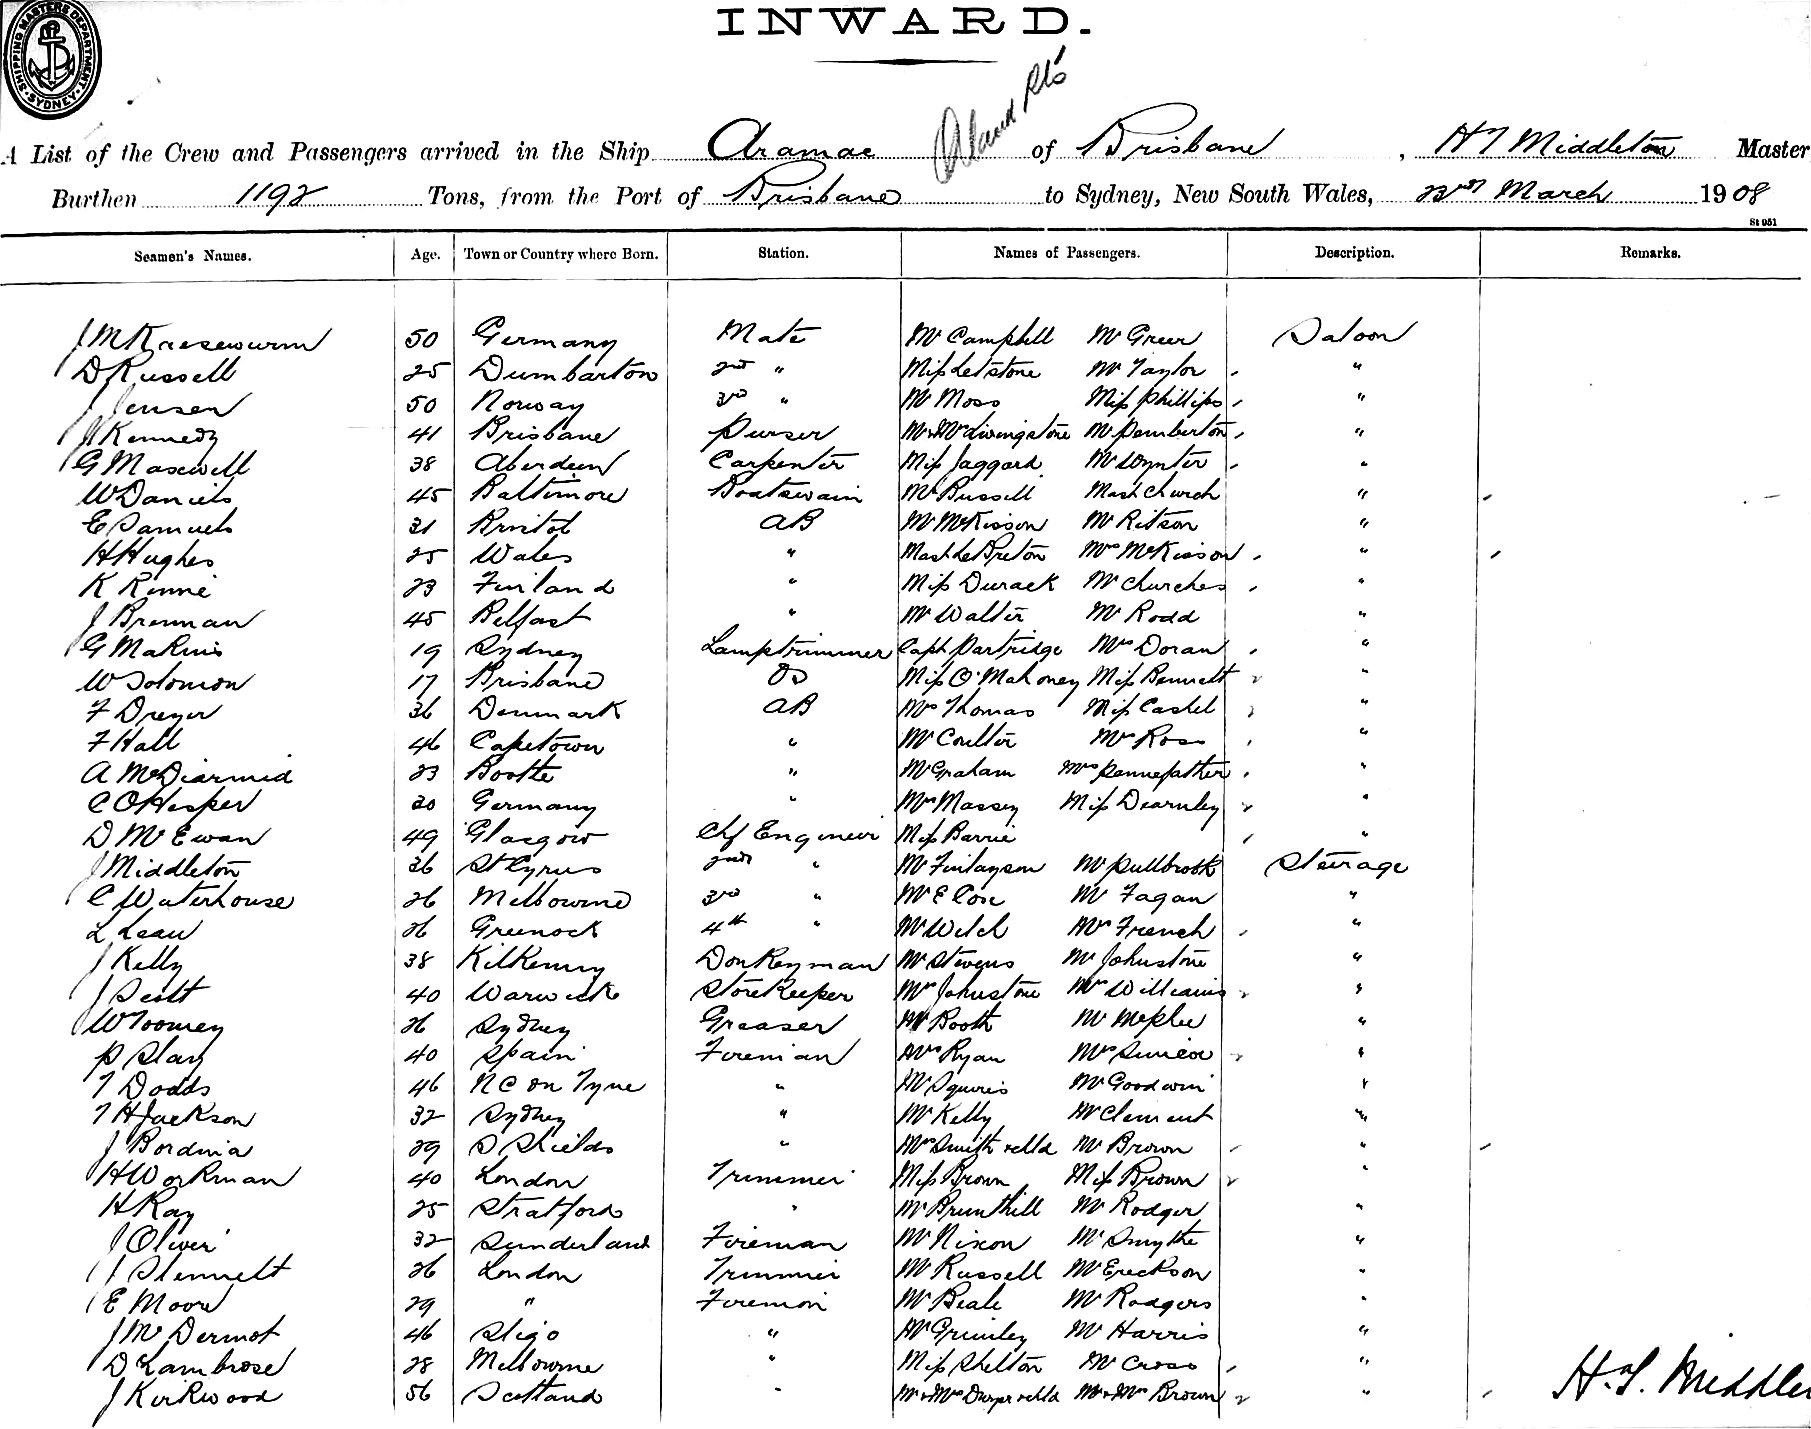 INWARD.
SHIPPING MASTERS DEPARTMENT. SYDNEY.
A List of the Crew and Passengers arrived in the Ship Aramac of Brisbane, H T Middleton Master
Burthen 1192 Tons, from the Port of Brisbane to Sydney, New South Wales, March 1908
St 951
Seamen's Names. Age. Town or Country where Born. Station. Names of Passengers. Description. Remarks.
50 Germany Mate Mr Campbell Mr Greer Saloon
D Russell 25 Dumbarton 2nd " Miss Letstone Mr Taylor "
J Jensen 50 Norway 3rd " Mr Moss Miss Phillips "
J Kennedy 41 Brisbane Purser Mr & Mrs Livingstone Mr Pemberton "
G Maxwell 38 Aberdeen Carpenter Miss Jaggard Mr Wynter "
W Daniels 45 Baltimore Boatswain Mr Bussell Mast Church "
E Samuels 31 Bristol AB Mr McKisson Mr Ritson "
H Hughes 25 Wales " Mast Le Breton Mrs McKisson "
K Rinne 23 Finland " Miss Durack Mr Churches "
J Brennan 45 Belfast " Mr Walter Mr Rodd "
G Makins 19 Sydney Lamptrimmer Capt Partridge Mrs Doran "
W Solomon 17 Brisbane OS Miss O'Mahoney Miss Bennett "
F Dreyer 36 Denmark AB Mrs Thomas Miss Castel "
F Hall 46 Capetown " Mr Coulter Mrs Ross "
A McDiarmid 23 Bootle " Mr Graham Mrs Pennefather "
C O Hesper 30 Germany " Mrs Massey Miss Dearnley "
D McEwan 49 Glasgow Chf Engineer Miss Barrie "
J Middleton 36 St Cyrus 2nd " Mr Finlayson Mr Pullbrook Steerage
C Waterhouse 26 Melbourne 3rd " Mr E Cox Mr Fagan "
L Lean 26 Greenock 4th " Mr Welch Mrs French "
J Kelly 38 Kilkenny Donkeyman Mr Stevens Mr Johnstone "
J Scott 40 Warwick Storekeeper Mrs Johnstone Mrs Williams "
W Toomey 26 Sydney Greaser Mr Booth Mr McPhee "
P Slay 40 Spain Fireman Mrs Ryan Mrs "
T Dodds 46 N C on Tyne " Mr Squires Mr Goodwin "
T H Jackson 32 Sydney " Mr Kelly Mr Clement "
J Bordina 29 S Shields " Mrs Smith & chld Mr Brown "
H Workman 40 London Trimmer Miss Brown Miss Brown "
H Ray 25 Stratford " Mr Brunthill Mr Rodger "
J Oliver 32 Sunderland Fireman Mr Nixon Mr Smythe "
J Stennett 26 London Trimmer Mr Russell Mr Erickson "
E Moore 29 " Fireman Mr Beale Mr Rodgers "
J McDermot 46 Sligo " Mr Grimley Mr Harris "
D Lambrose 28 Melbourne " Miss Shelton Mr Cross "
J Kirkwood 56 Scotland " Mr & Mrs Dwyer & chld Mr & Mrs Brown "